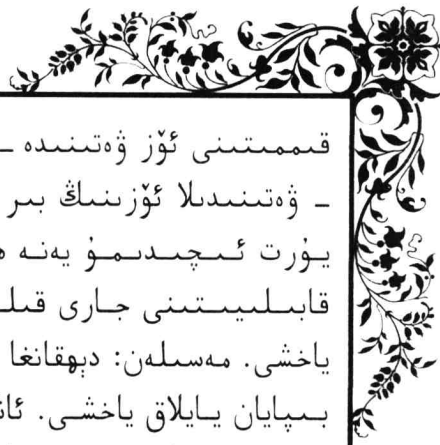 قىممىتىنى ئۆز ۋەتىنىدە –
– ۋەتىنىدىلا ئۆزىنىڭ بىر
يۇرت ئىچىدىمۇ يەنە
قابىلىيىتىنى جارى
ياخشى. مەسىلەن: دېھقانغا
بىپايان يايلاق ياخشى.